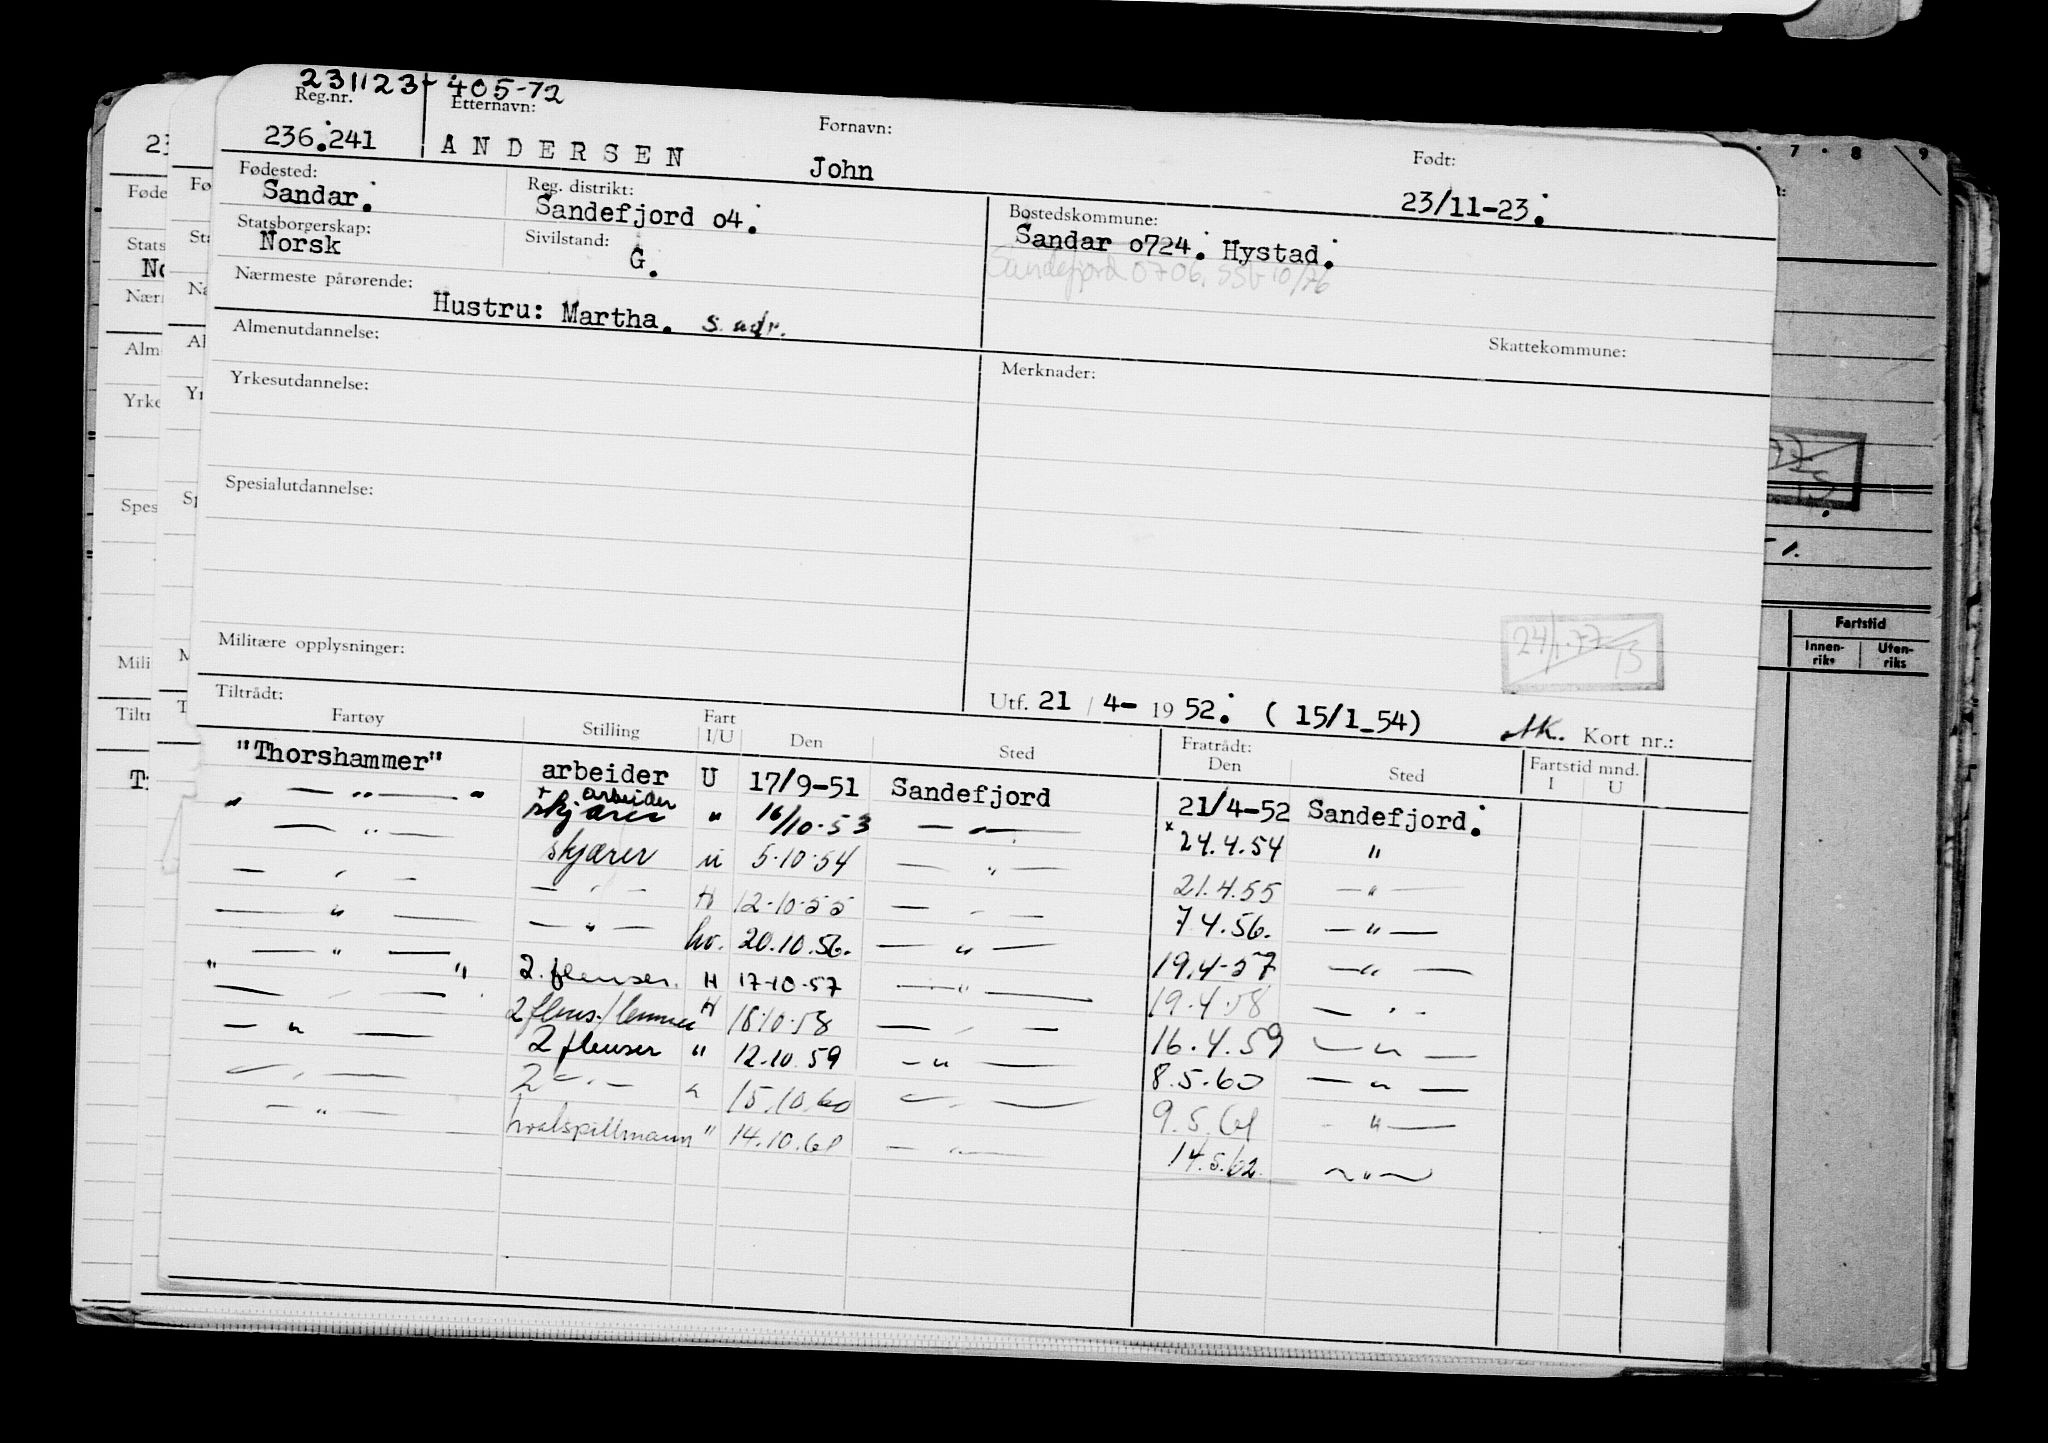 231123 405-72
Reg.nr. Etternavn: Fornavn: Født:
236.241 ANDERSEN John 23/11-23.
Fødested: Reg. distrikt: Bostedskommune:
Sandar. Sandefjord o4. Sandar o724. Hystad.
Statsborgerskap: Sivilstand: Sandefjord 0706. SSB 10/76
Norsk G.
Nærmeste pårørende:
Hustru: Martha. s. adr.
Skattekommune:
Almenutdannelse: Merknader:
Yrkesutdannelse:
Spesialutdannelse:
24/1.77
Militære opplysninger:
Utf. 21 / 4- 19 52. ( 15/1-54) Kort nr.:
Tiltrådt: Fratrådt:
Fartøy Stilling Fart I/U Den Sted Den Sted Fartstid mnd. I U
"Thorshammer" arbeider U 17/9-51 Sandefjord 21/4-52 Sandefjord.
" — " — " arbeider skjærer " 16/10-53 — " — x 24.4.54 "
— " — skjærer u 5-10-54 — " — 21.4.55 — " —
— " — — " — H 12-10-55 — " — 7 4.56. — " —
— " — — " — hv. 20.10.56. — " — 19.4-57 — " —
— " — 2. flenser. H 17-10-57 — " — 19.4.58 — " —
" — " — " 2 flens./lemmer H 18.10.58 — " — 16.4.59 — " —
— " — 2 flenser " 12.10.59 — " — 8.5.60 — " —
— " — 2 — " — " 15.10.60 — " — 9.5.61 — " —
— " — hvalspillmann " 14.10.61 — " — 14.5.62. — " —
7 8 9
Fartstid
Innen-riks Uten-riks